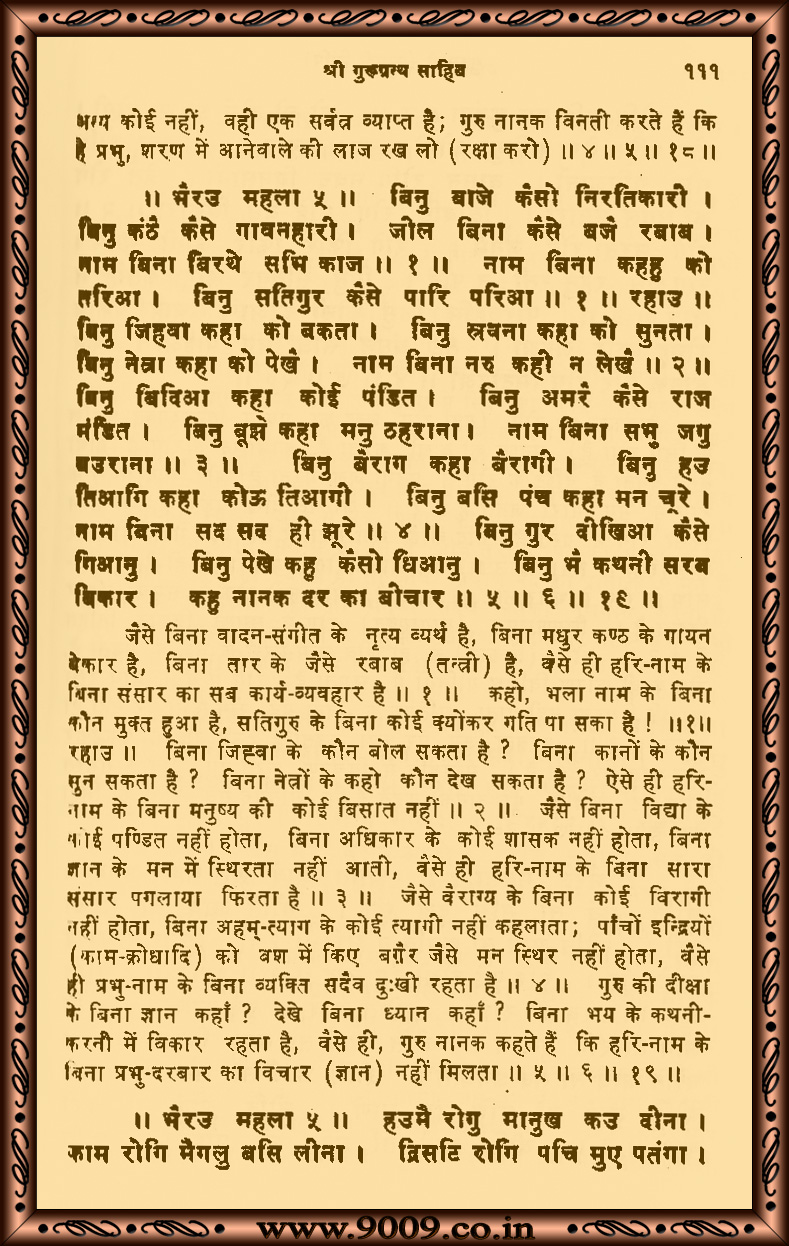 श्री गुरूग्रन्थ साहिब १११
अन्य कोई नहीं, वही एक सर्वत्र व्याप्त है; गुरु नानक विनती करते हैं कि
हे प्रभु, शरण में आनेवाले की लाज रख लो (रक्षा करो) ॥ ४ ॥ ५ ॥ १८ ॥
॥ भैरउ महला ५ ॥ बिनु बाजे कैसो निरतिकारी ।
बिनु कंठै कैसे गावनहारी । जील बिना कैसे बजै रबाब ।
नाम बिना बिरथे सभि काज ॥ १ ॥ नाम बिना कहहु को
तरिआ । बिनु सतिगुर कैसे पारि परिआ ॥ १ ॥ रहाउ ॥
बिनु जिहवा कहा को बकता । बिनु स्रवना कहा को सुनता ।
बिनु नेत्रा कहा को पेखै । नाम बिना नरु कही न लेखै ॥ २ ॥
बिनु बिदिआ कहा कोई पंडित । बिनु अमरै कैसे राज
मंडित । बिनु बूझे कहा मनु ठहराना । नाम बिना सभु जगु
बउराना ॥ ३ ॥ बिनु बैराग कहा बैरागी । बिनु हउ
तिआगि कहा कोऊ तिआगी । बिनु बसि पंच कहा मन चूरे ।
नाम बिना सद सद ही झूरे ॥ ४ ॥ बिनु गुर दीखिआ कैसे
गिआनु । बिनु पेखे कहु कैसो धिआनु । बिनु भै कथनी सरब
बिकार । कहु नानक दर का बीचार ॥ ५ ॥ ६ ॥ १९ ॥
जैसे बिना वादन-संगीत के नृत्य व्यर्थ है, बिना मधुर कण्ठ के गायन
बेकार है, बिना तार के जैसे रबाब (तन्त्री) है, वैसे ही हरि-नाम के
बिना संसार का सब कार्य-व्यवहार है ॥ १ ॥ कहो, भला नाम के बिना
कौन मुक्त हुआ है, सतिगुरु के बिना कोई क्योंकर गति पा सका है ! ॥१॥
रहाउ ॥ बिना जिह्वा के कौन बोल सकता है ? बिना कानों के कौन
सुन सकता है ? बिना नेत्रों के कहो कौन देख सकता है ? ऐसे ही हरि-
नाम के बिना मनुष्य की कोई बिसात नहीं ॥ २ ॥ जैसे बिना विद्या के
कोई पण्डित नहीं होता, बिना अधिकार के कोई शासक नहीं होता, बिना
ज्ञान के मन में स्थिरता नहीं आती, वैसे ही हरि-नाम के बिना सारा
संसार पगलाया फिरता है ॥ ३ ॥ जैसे वैराग्य के बिना कोई विरागी
नहीं होता, बिना अहम्-त्याग के कोई त्यागी नहीं कहलाता; पाँचों इन्द्रियों
(काम-क्रोधादि) को वश में किए बग़ैर जैसे मन स्थिर नहीं होता, वैसे
ही प्रभु-नाम के बिना व्यक्ति सदैव दुःखी रहता है ॥ ४ ॥ गुरु की दीक्षा
के बिना ज्ञान कहाँ ? देखे बिना ध्यान कहाँ ? बिना भय के कथनी-
करनी में विकार रहता है, वैसे ही, गुरु नानक कहते हैं कि हरि-नाम के
बिना प्रभु-दरबार का विचार (ज्ञान) नहीं मिलता ॥ ५ ॥ ६ ॥ १९ ॥
॥ भैरउ महला ५ ॥ हउमै रोगु मानुख कउ दीना ।
काम रोगि मैगलु बसि लीना । द्रिसटि रोगि पचि मुए पतंगा ।
www.9009.co.in